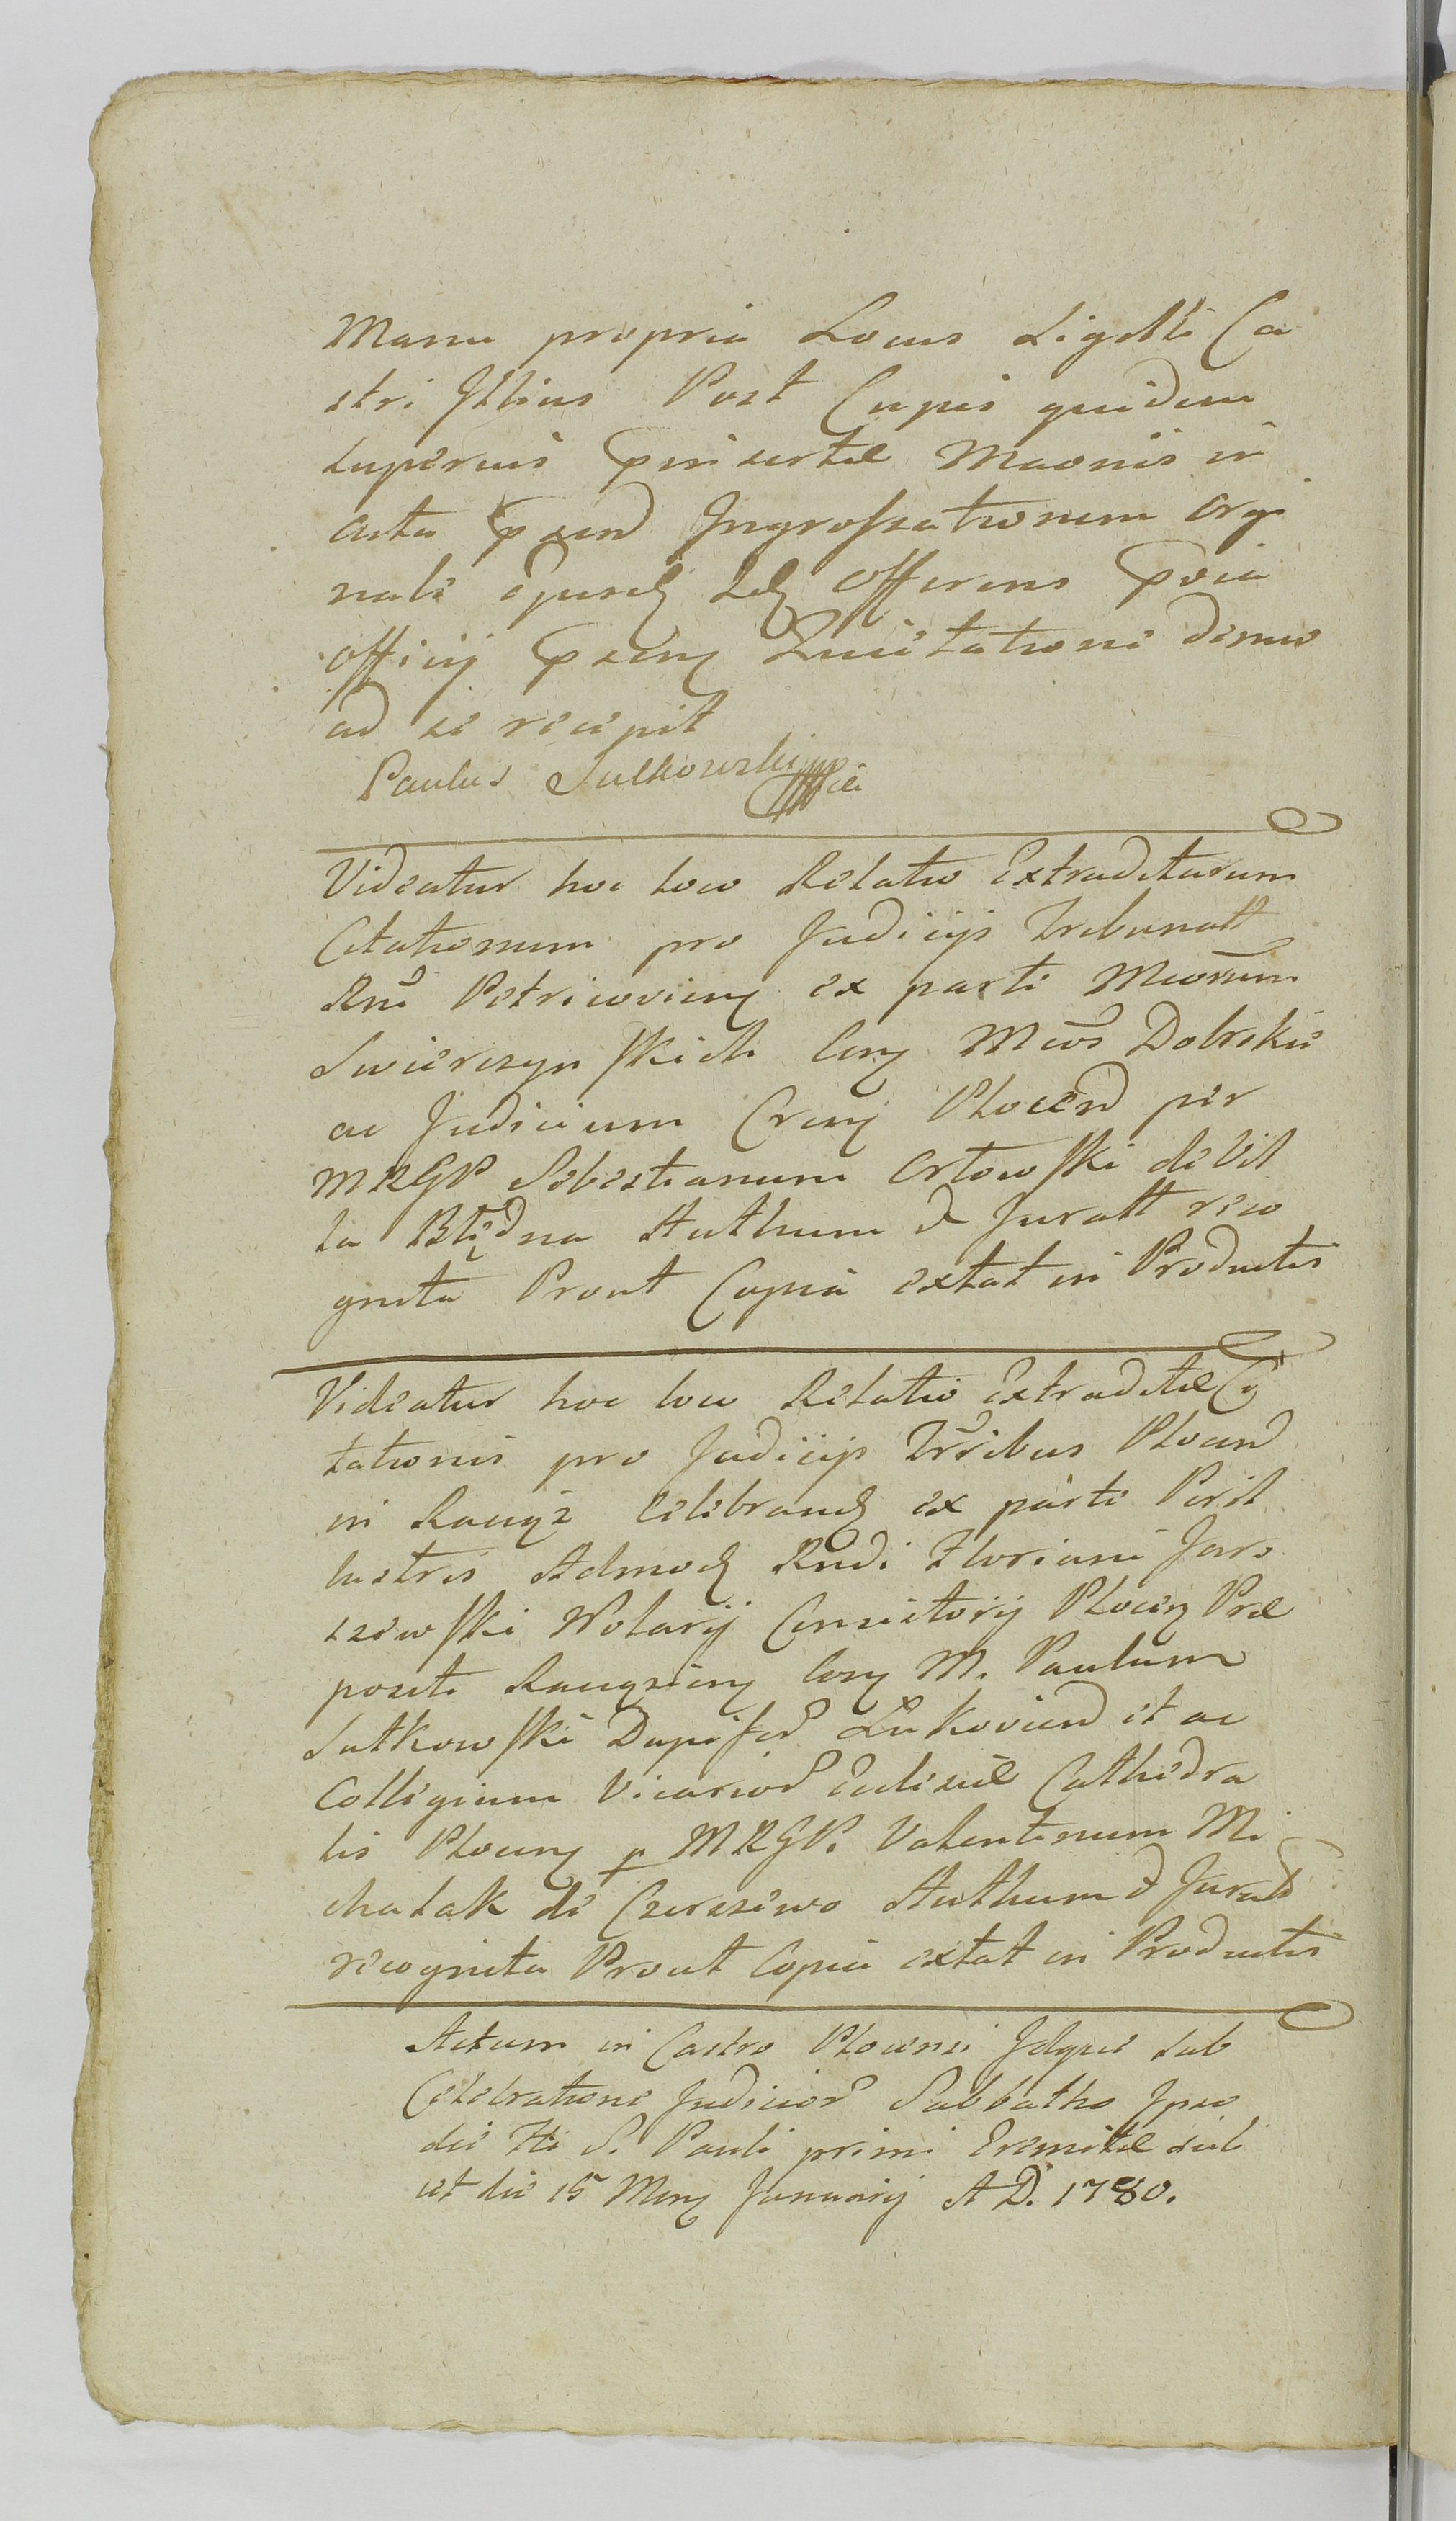 Manu propria Locus Sigilli Ca
stri Illius Post Cujus quidem
superius insertæ Maonis in
Acta Ingrossationem Orgi
nale ejusd Idq Offerens
Officij Quietatione denuo
ad se recepit
Paulus Sutkowski mpp
Videatur hoc loco Relatio Extraditarum
Citationum pro Judicijs Tribunall
Rni Petricovien ex parte Mcorum
Swierczynskich Con Mcos Dobrskie
ac Judicium Cren Plocen per
MRGP Sebestianum Orłowski de Vil
la Błędna Authum & Juratt reco
gnita Prout Copia extat in Productis
Videatur hoc loco Relatio Extraditæ Ci
tationis pro Judicijs Trribus Plocen
in Raciąż Celebrand ex parte Peril
lustris Admod Rndi Floriani Jaro
szewski Notarij Consistorij Plocen Præ
positi Raciążien Con M. Paulum
Sutkowski Dapifer Łukovien et ac
Collegium Vicarior Eclesiæ Cathedra
lis Plocen p MRGP. Valentinum Mi
chalak de Czerszewo Authum & Jurat
recognita Prout Copia extat in Productis
Actum in Castro Plocensi Idque sub
Celebratione Judicior Sabbatho Ipso
die Fti S. Pauli primi Eremitæ scili
cet die 15 Men Januarij A D. 1780.